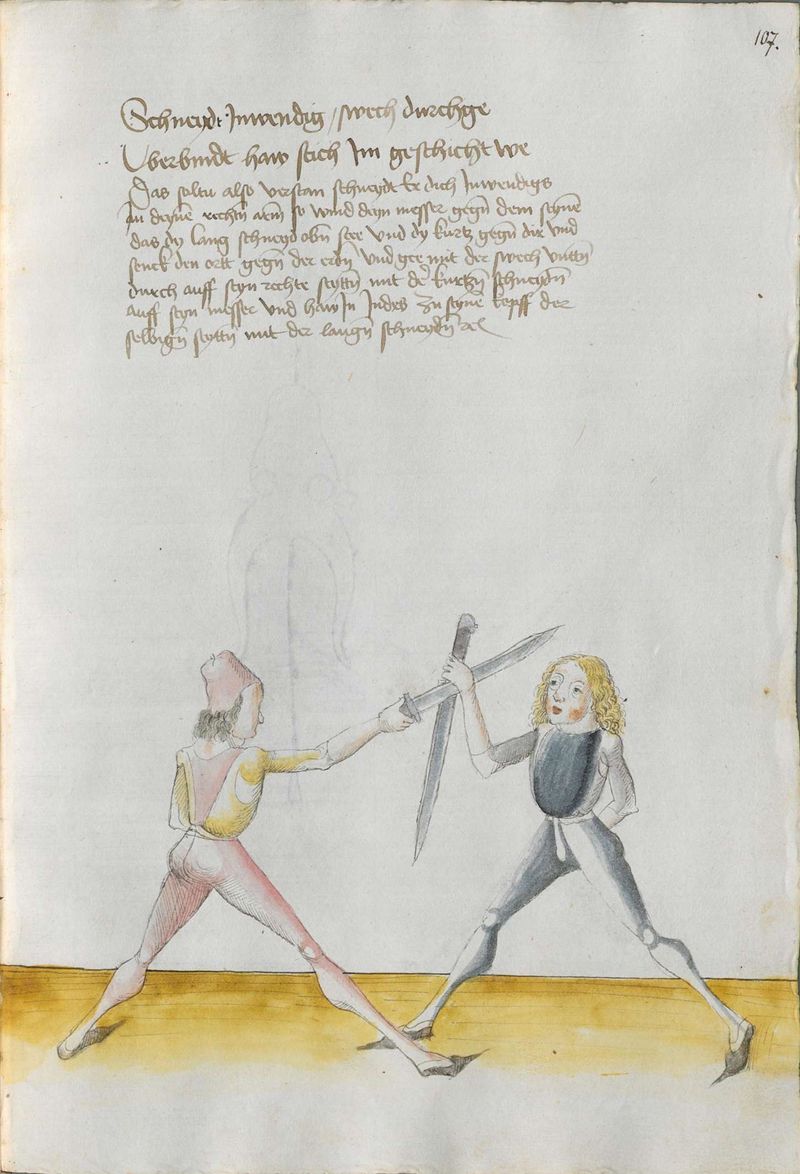 107.
Schneydt Inwendig / swech durchge
Uberbindt haw stich Im geschicht we
Das soltu also verstan schneydt er dich Inwendigs
zu deynē rechtn arm so wind deyn messer gegn dem seynē
das dy lang schneyd obn stee vnd dy kurtz gegn dir vnd
senck den ortt gegn der erdn vnd gee mit der swech vnttn
durch auff seyn rechte seyttn mit der kurtzn schneydn
auff seyn messer vnd haw In Indes zu seynē kopff der
selbign seyttn mit der langn schneydn